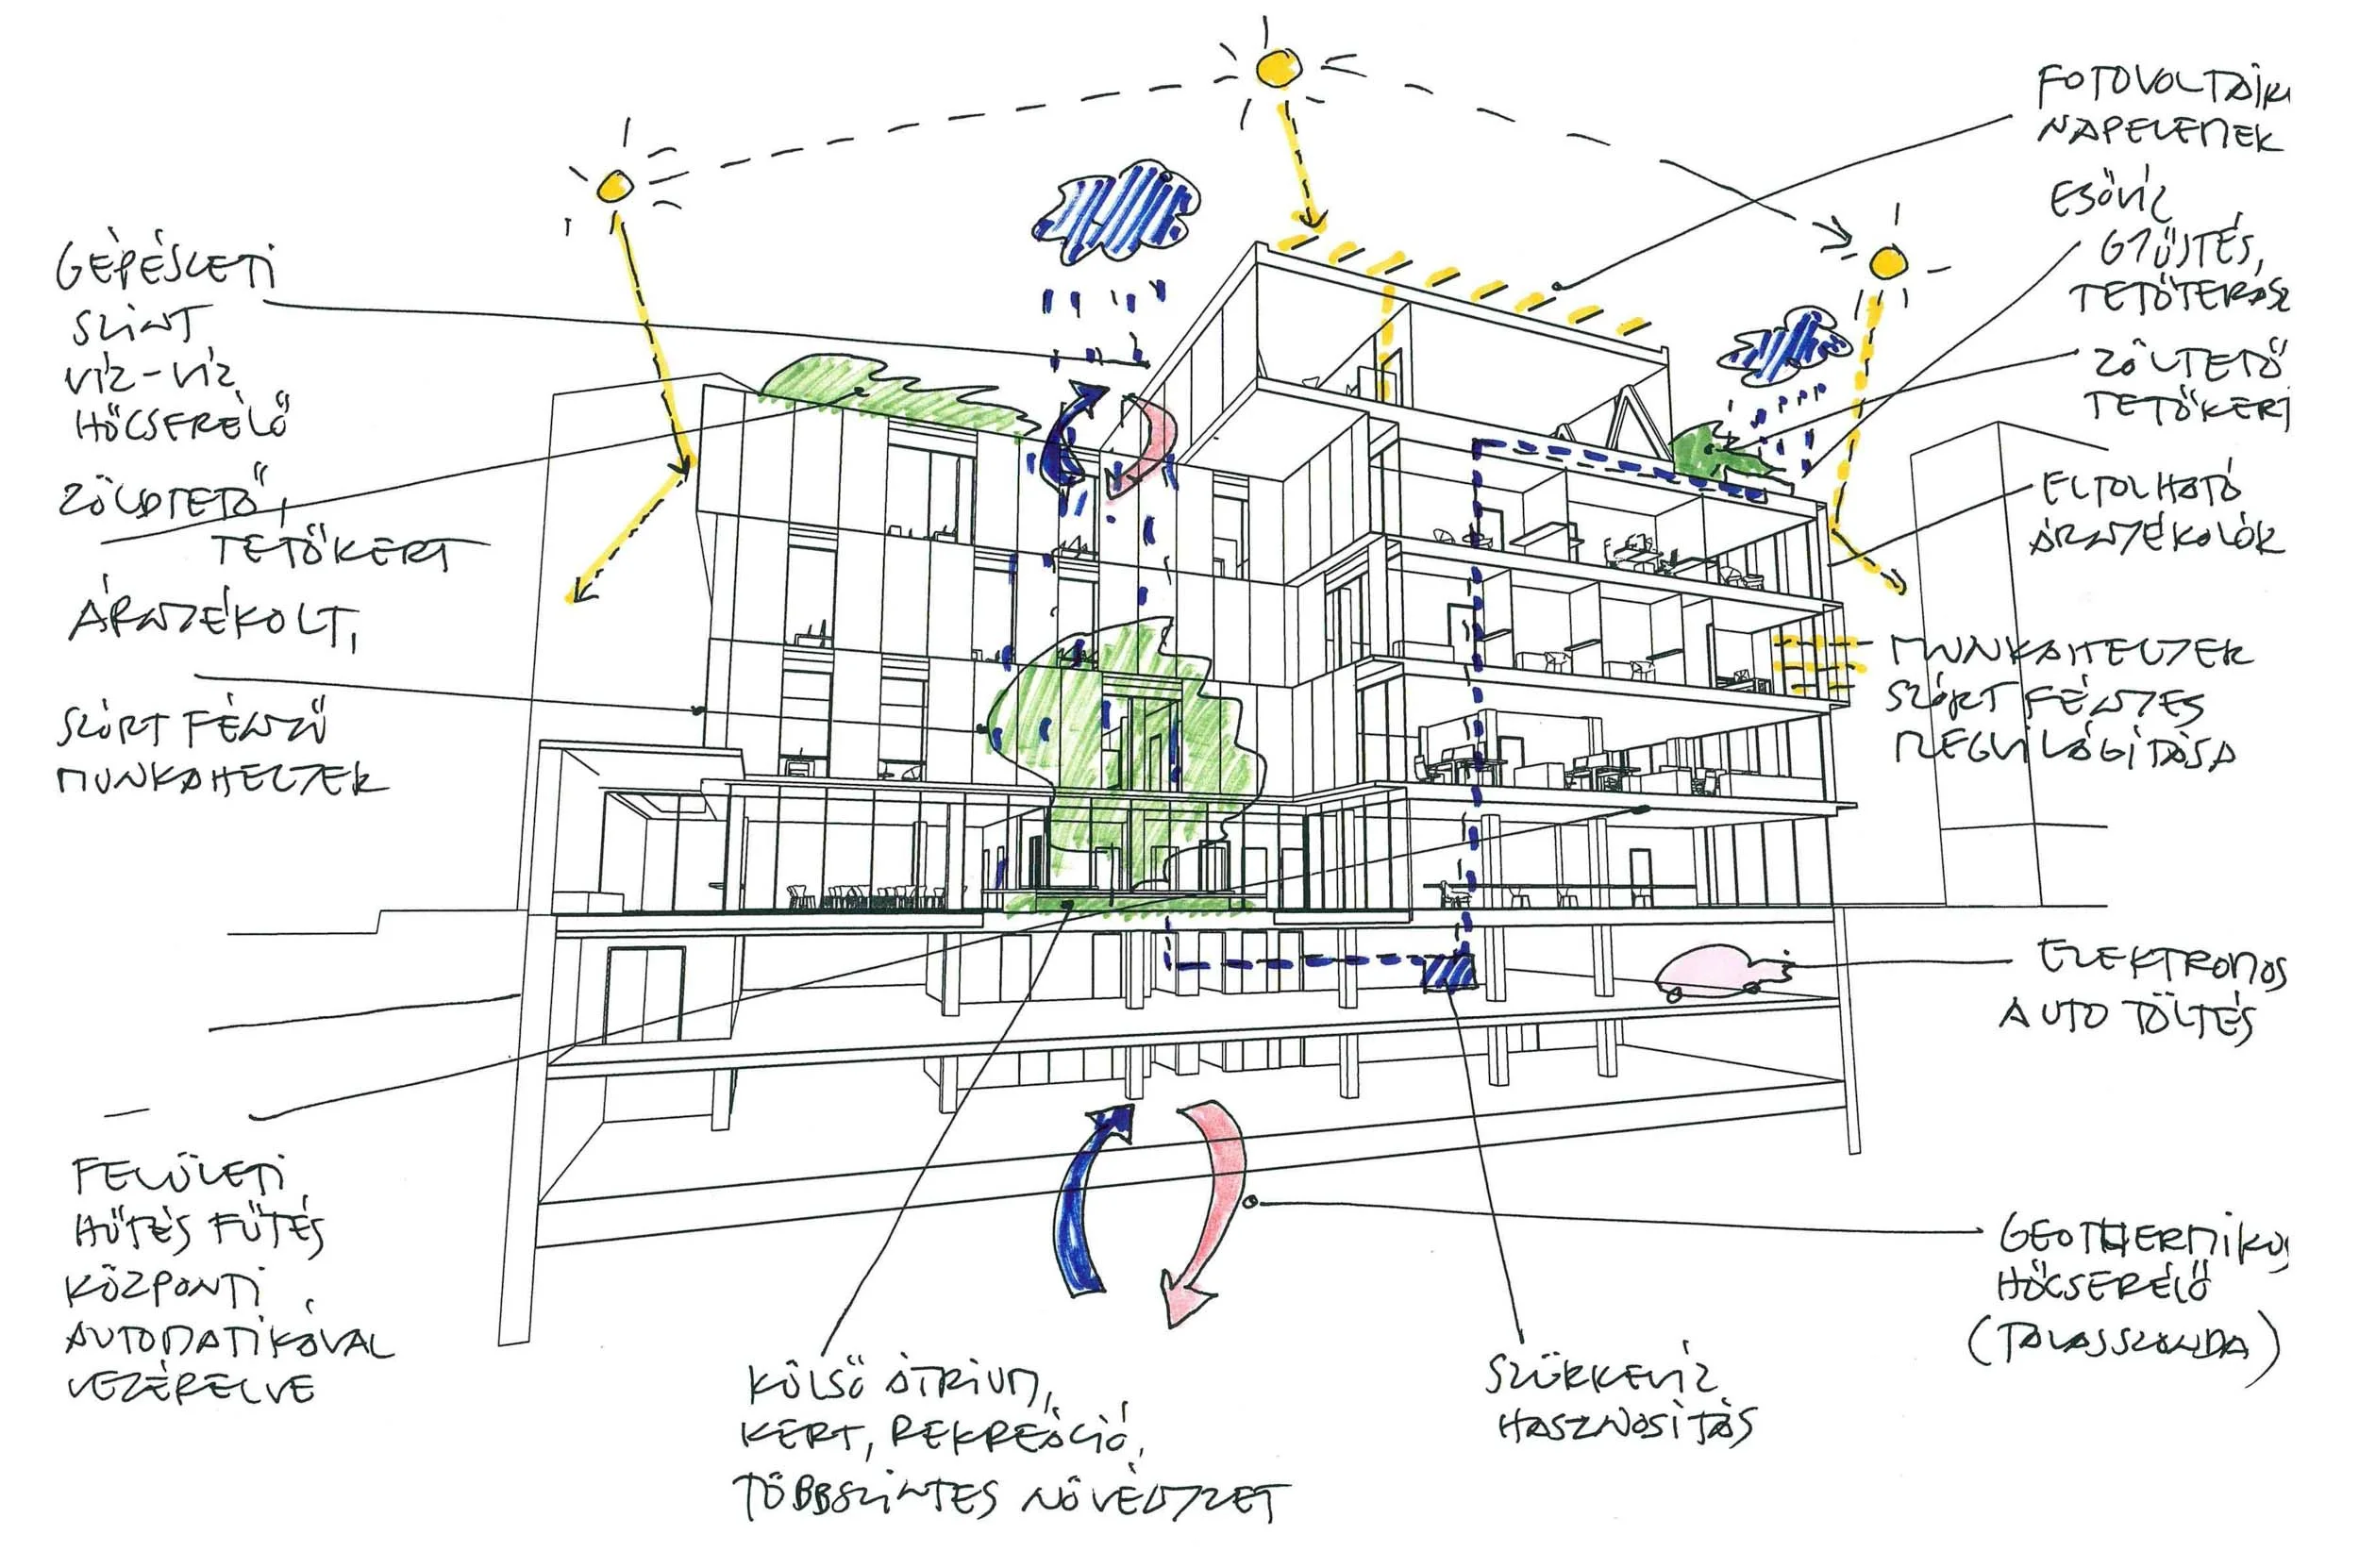 GÉPÉSZETI
SZINT
VÍZ-VÍZ
HŐCSERÉLŐ
ZÖLDTETŐ,
TETŐKERT
ÁRNYÉKOLT,
SZÓRT FÉNYŰ
MUNKAHELYEK
FELÜLETI
HŰTÉS FŰTÉS
KÖZPONTI
AUTOMATIKÁVAL
VEZÉRELVE
KÜLSŐ ÁTRIUM,
KERT, REKREÁCIÓ,
TÖBBSZINTES NÖVÉNYZET
SZÜRKEVÍZ
HASZNOSÍTÁS
FOTOVOLTAIK
NAPELEMEK
ESŐVÍZ
GYŰJTÉS,
TETŐTERASZ
ZÖLTETŐ
TETŐKERT
ELTOLHATÓ
ÁRNYÉKOLÓK
MUNKAHELYEK
SZÓRT FÉNYES
MEGVILÁGÍTÁSA
ELEKTROMOS
AUTO TÖLTÉS
GEOTHERMIKUS
HŐCSERÉLŐ
(TALAJSZONDA)